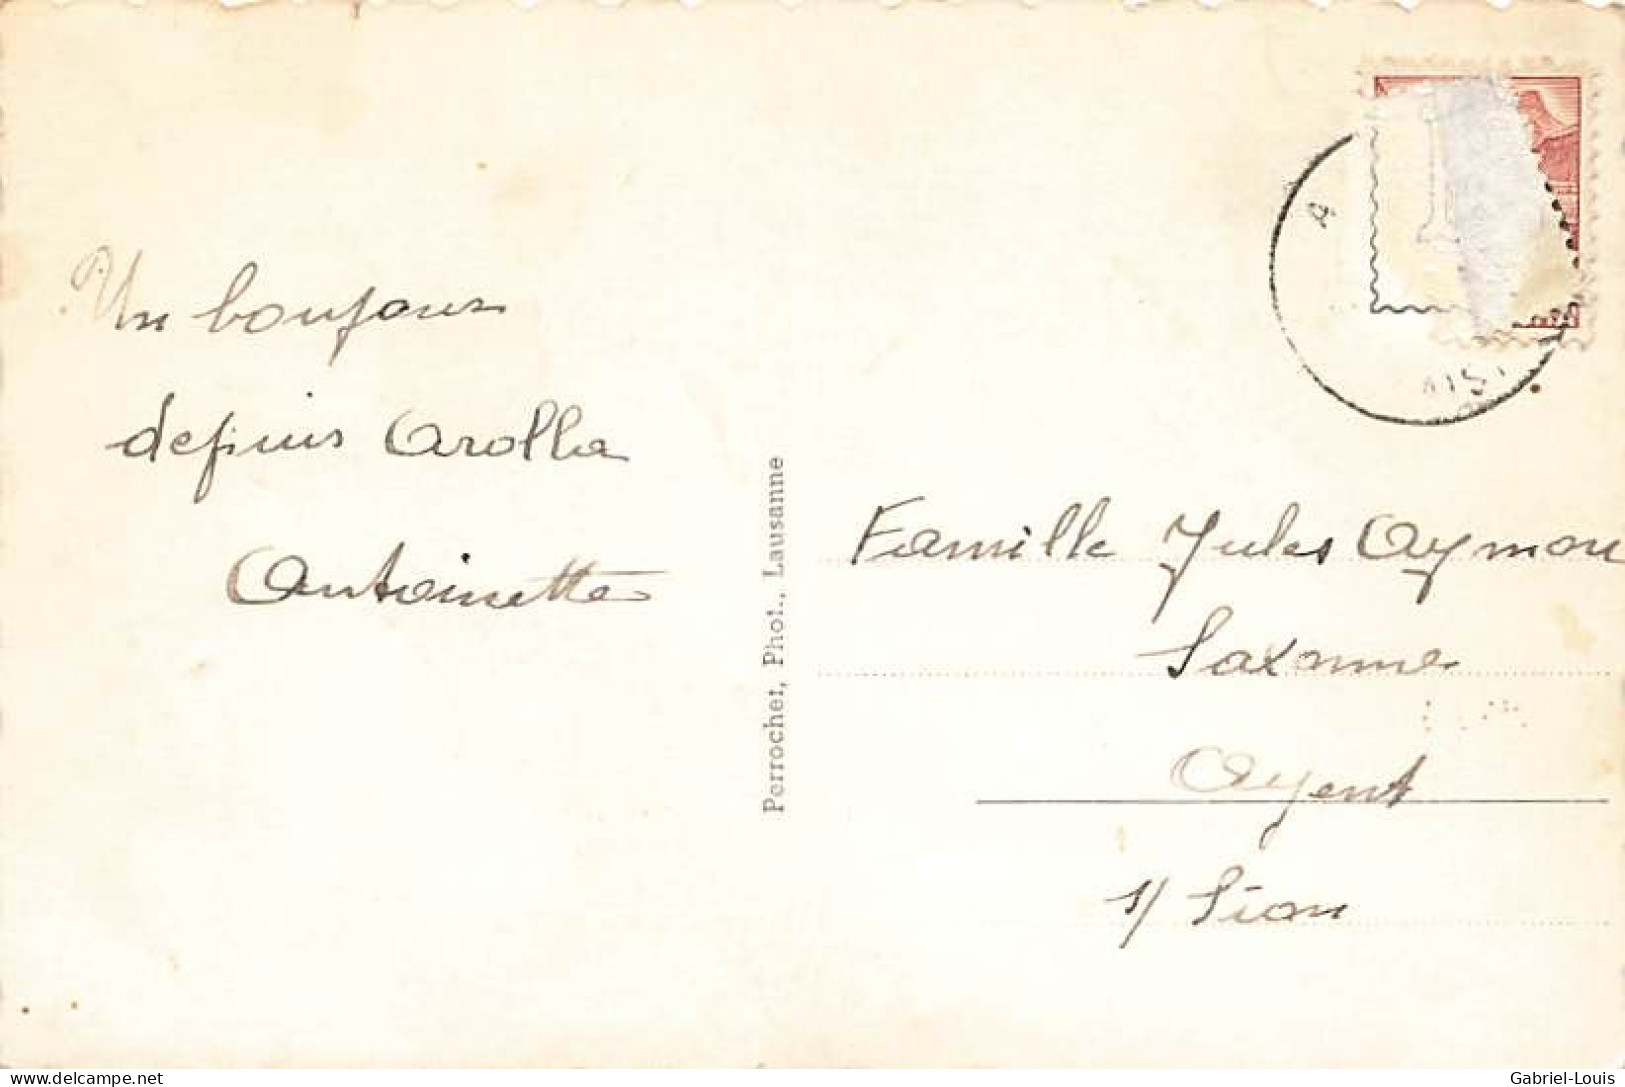 Un bonjour
depuis Arolla
Antoinette
Perrochet, Phot., Lausanne
Famille Jules Aymon
Saxonne
Ayent
s/ Sion
delcampe.net
Gabriel-Louis